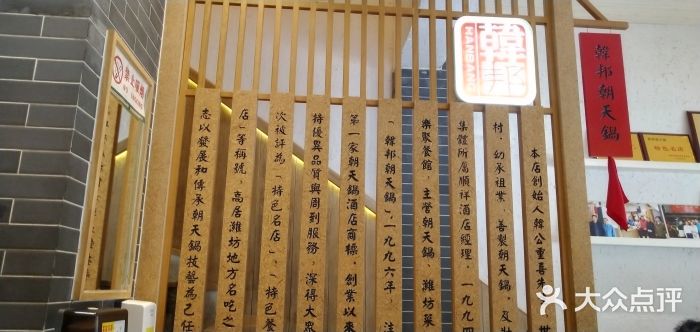 韓邦
HANBANG
韓邦朝天鍋
特色名店
本店創始人韓公重喜
村，幼承祖業，善製朝天鍋，及
集體所屬順祥酒店經理，一九九四
樂聚餐館，主營朝天鍋，濰坊菜
「韓邦朝天鍋」，一九九六年，注
第一家朝天鍋酒店商標，創業以來
特優異品質與周到服務，深得大眾
次被評爲「特色名店」，「特色餐
店」等稱號，高居濰坊地方名吃之
志以發展和傳承朝天鍋技藝爲己任
大众点评